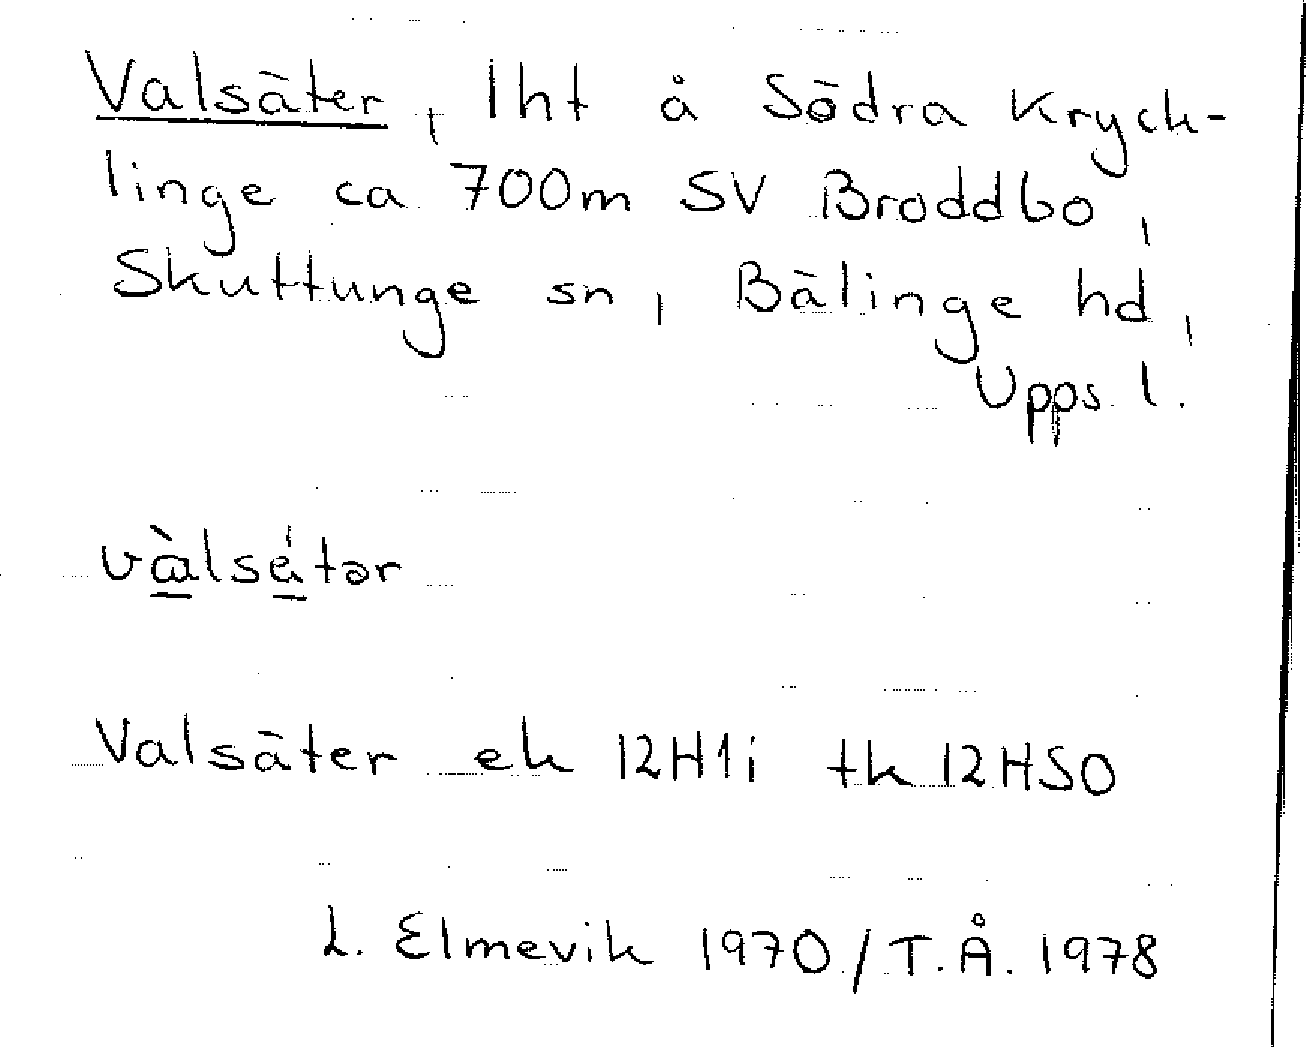 Valsäter, lht å Södra Kryck-
linge ca 700m SV Broddbo,
Skuttunge sn, Bälinge hd,
Upps. l.
và̱lsé̱tər
Valsäter ek 12H1i tk 12HSO
L. Elmevik 1970/T.Å. 1978